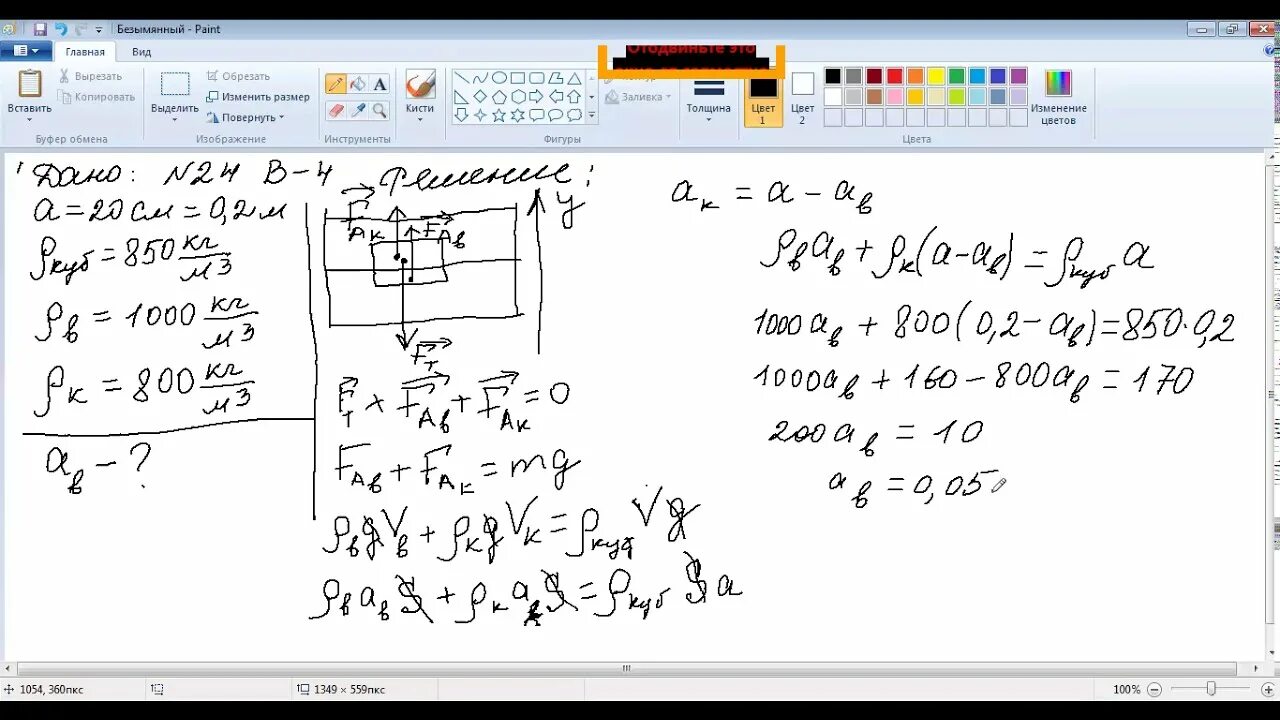 Безымянный - Paint
Главная Вид
Отодвиньте это
Вставить
Вырезать
Копировать
Буфер обмена
Выделить
Обрезать
Изменить размер
Повернуть
Изображение
A
Инструменты
Кисти
Заливка
Фигуры
Толщина
Цвет 1
Цвет 2
Изменение цветов
Цвета
Дано: N24 В-4 Решение:
a = 20 см = 0,2 м
ρкуб = 850 кг/м3
ρв = 1000 кг/м3
ρк = 800 кг/м3
aв - ?
FАк FАв y
Fт
Fт + FАв + FАк = 0
FАв + FАк = mg
ρв g Vв + ρк g Vк = ρкуб V g
ρв aв S + ρк aк S = ρкуб S a
aк = a - aв
ρв aв + ρк (a - aв) = ρкуб a
1000aв + 800(0,2 - aв) = 850·0,2
1000aв + 160 - 800aв = 170
200aв = 10
aв = 0,05
1054, 360пкс
1349 × 559пкс
100%